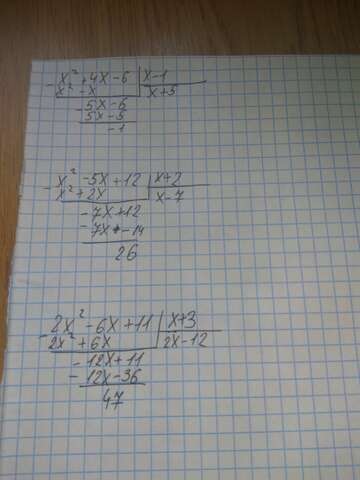 - x² + 4x - 6 | x - 1
x² - x | x + 5
- 5x - 6
5x - 5
- 1
- x² - 5x + 12 | x + 2
x² + 2x | x - 7
- 7x + 12
- 7x - 14
26
- 2x² - 6x + 11 | x + 3
2x² + 6x | 2x - 12
- 12x + 11
- 12x - 36
47